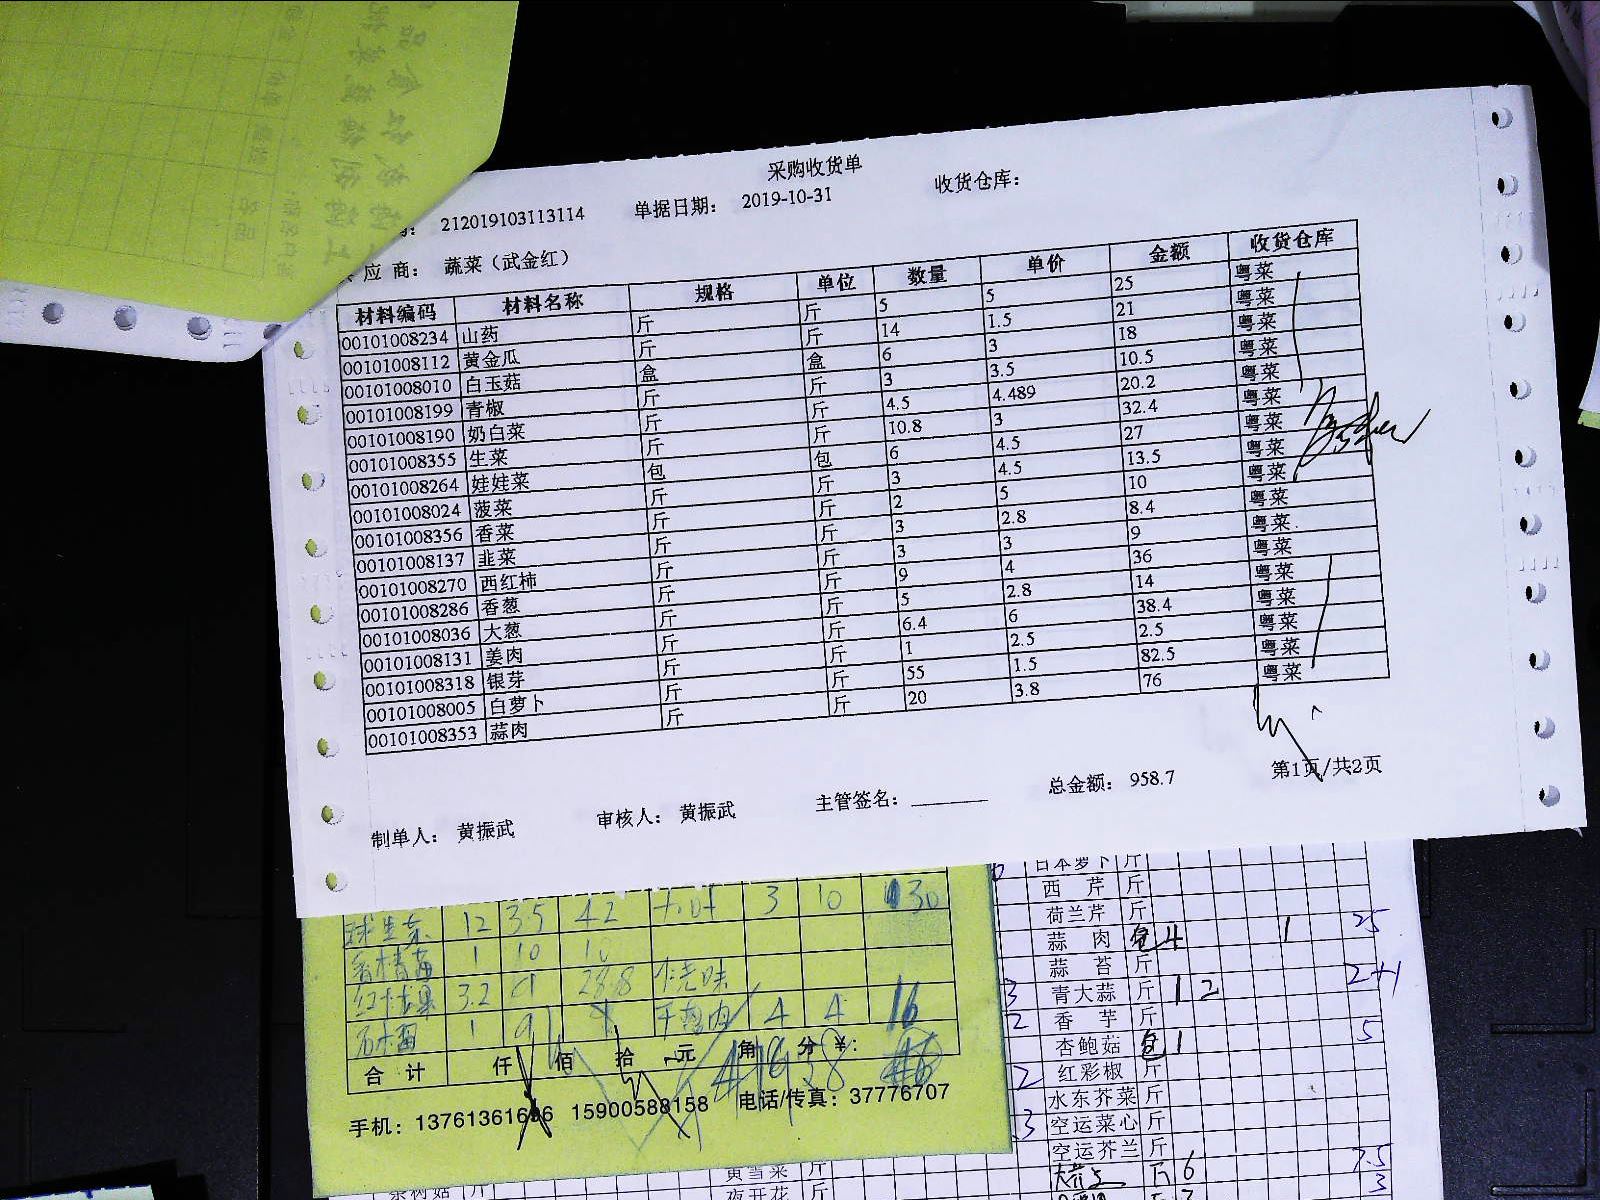 采购收货单
212019103113114 单据日期： 2019-10-31 收货仓库：
应 商： 蔬菜（武金红）
材料编码 材料名称 规格 单位 数量 单价 金额 收货仓库
00101008234 山药 斤 斤 5 5 25 粤菜
00101008112 黄金瓜 斤 斤 14 1.5 21 粤菜
00101008010 白玉菇 盒 盒 6 3 18 粤菜
00101008199 青椒 斤 斤 3 3.5 10.5 粤菜
00101008190 奶白菜 斤 斤 4.5 4.489 20.2 粤菜
00101008355 生菜 斤 斤 10.8 3 32.4 粤菜
00101008264 娃娃菜 包 包 6 4.5 27 粤菜
00101008024 菠菜 斤 斤 3 4.5 13.5 粤菜
00101008356 香菜 斤 斤 2 5 10 粤菜
00101008137 韭菜 斤 斤 3 2.8 8.4 粤菜
00101008270 西红柿 斤 斤 3 3 9 粤菜
00101008286 香葱 斤 斤 9 4 36 粤菜
00101008036 大葱 斤 斤 5 2.8 14 粤菜
00101008131 姜肉 斤 斤 6.4 6 38.4 粤菜
00101008318 银芽 斤 斤 1 2.5 2.5 粤菜
00101008005 白萝卜 斤 斤 55 1.5 82.5 粤菜
00101008353 蒜肉 斤 斤 20 3.8 76 粤菜
制单人： 黄振武 审核人： 黄振武 主管签名： 总金额： 958.7 第1页/共2页
球生菜 12 3.5 42 3 10 30
1 10 10
3.2 9 28.8 烧味
1 9 4 4 16
合 计 仟 佰 拾 元 角 分 ¥：
手机：13761361686 15900588158 电话/传真：37776707
日本萝卜 斤
西 芹 斤
荷兰芹 斤
蒜 肉 包 4 1 25
蒜 苔 斤
3 青大蒜 斤 1 2 2+1
2 香 芋 斤
杏鲍菇 包 1 5
2 红彩椒 斤
水东芥菜 斤
3 空运菜心 斤
空运芥兰 斤
6 7.5
3
茶树菇 斤
夜开花 斤